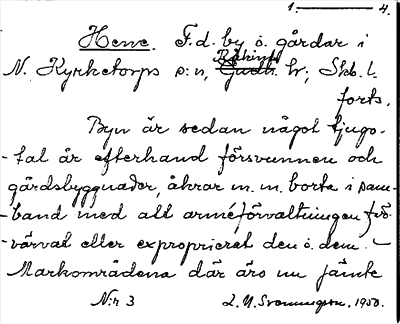 1. 4.
Hene. F.d. by o. gårdar i
Kåkinds
N. Kyrketorps s:n, Gudh. hr; Skb. l.
forts.
Byn är sedan något tjugo-
-tal år efterhand försvunnen och
gårdsbyggnader, åkrar m.m. borta i sam-
-band med att arméförvaltningen för-
-värvat eller exproprierat den o. dem. –
Markområdena där äro nu jämte
N:r 3 L. M. Svenungsson. 1950.